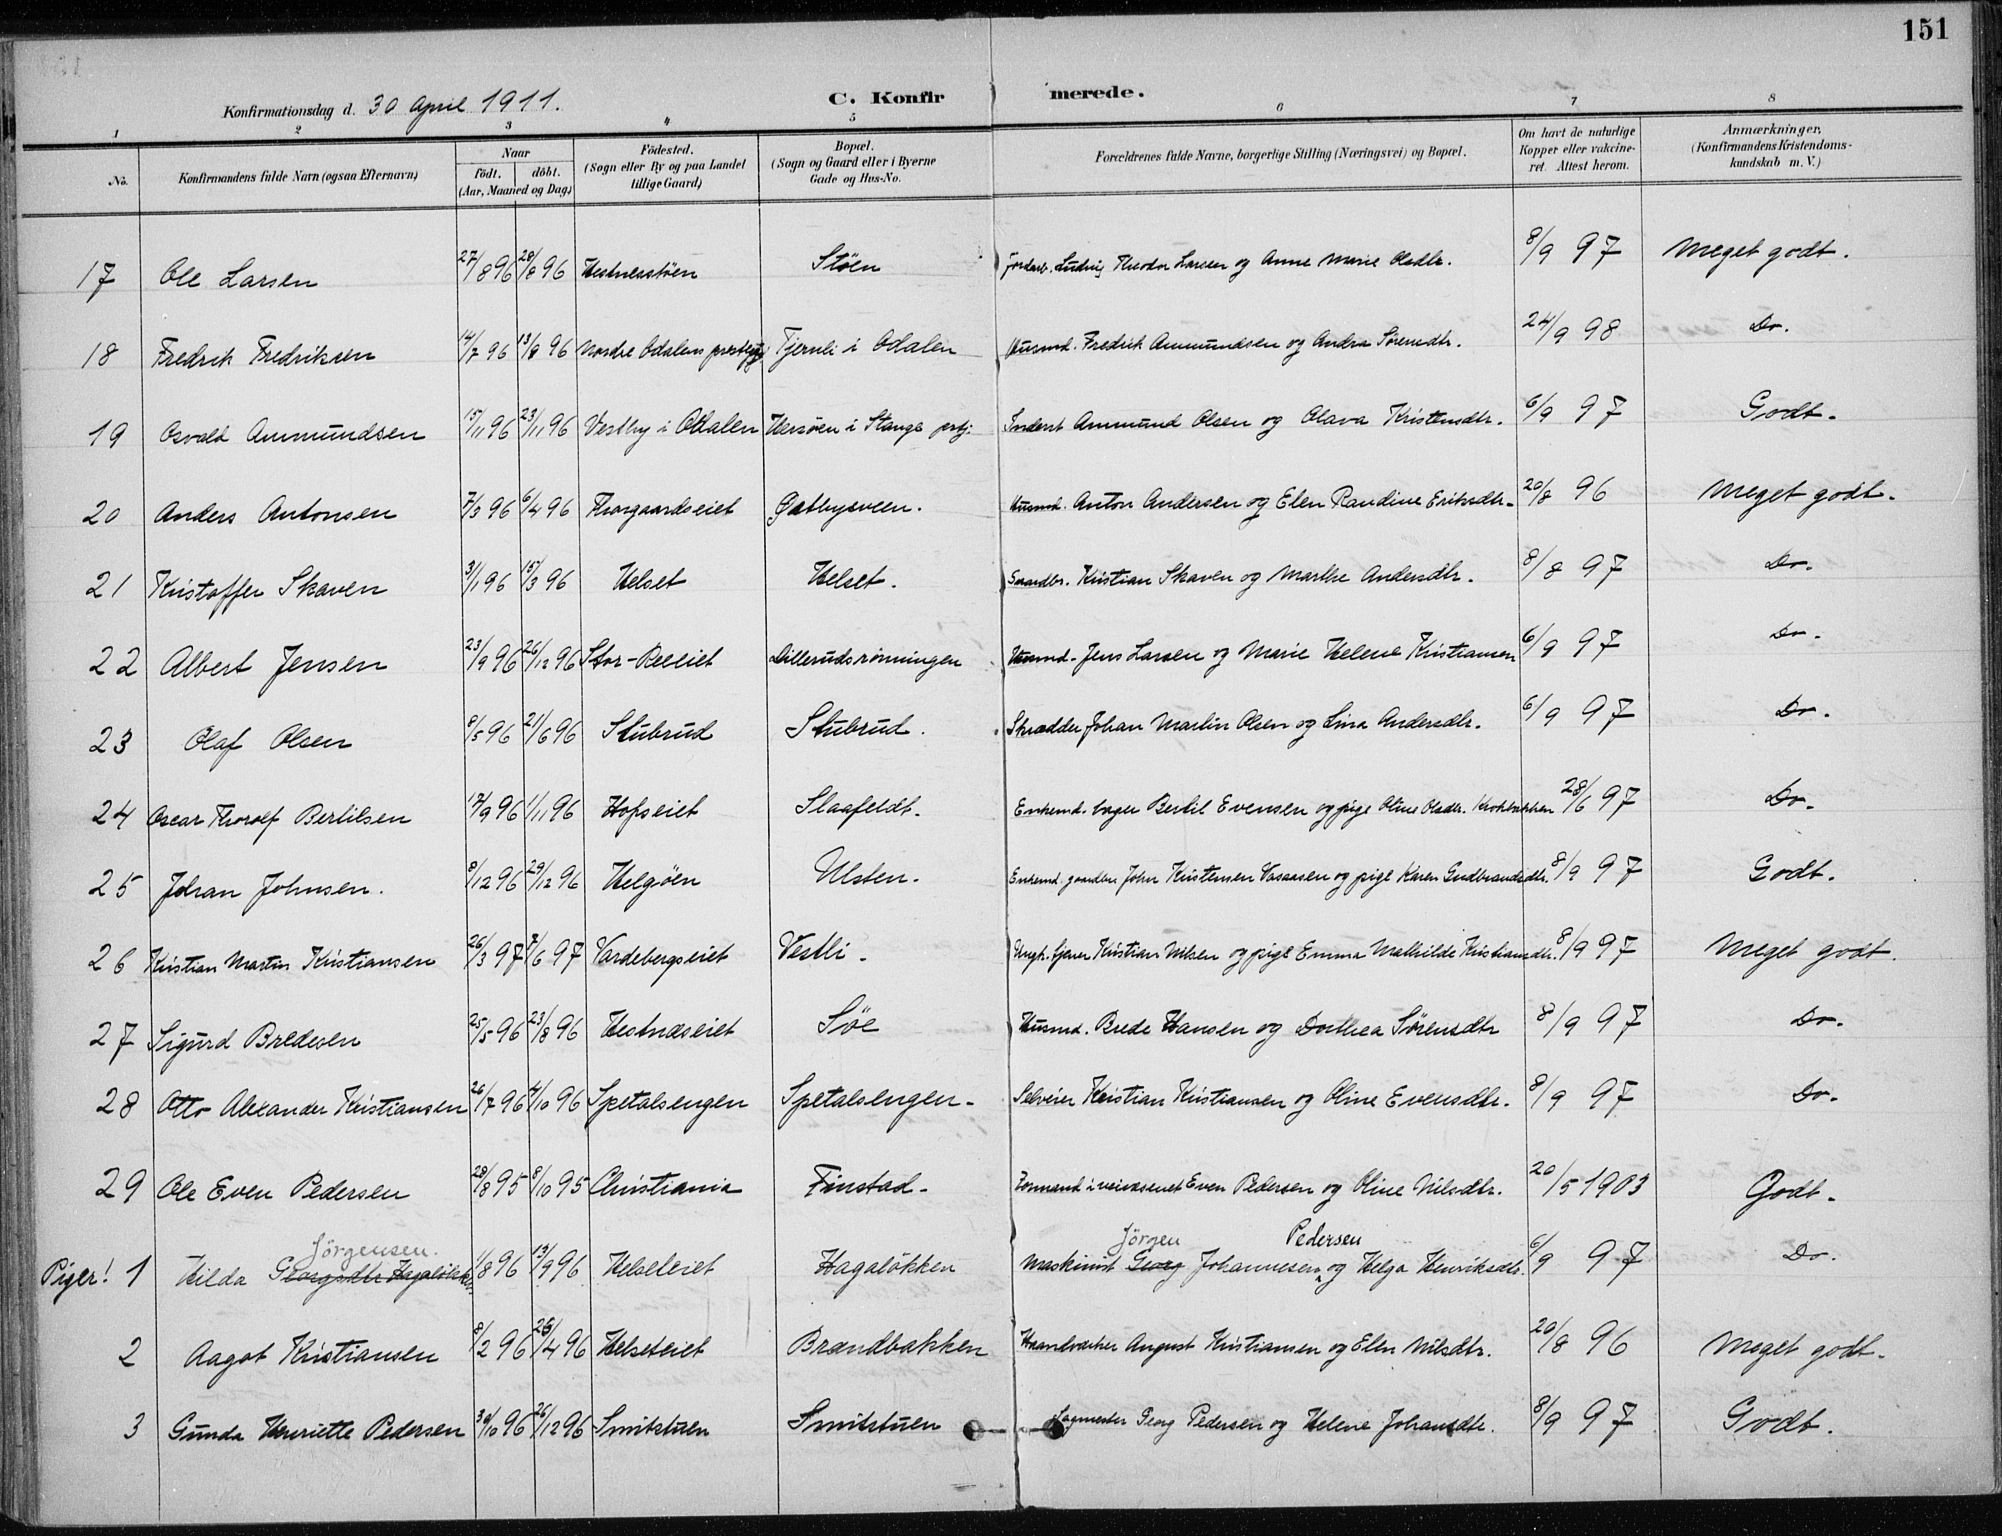 151
Konfirmationsdag d. 30 April 1911. C. Konfirmerede.
1 2 3 4 5 6 7 8
No. Konfirmandens fulde Navn (ogsaa Efternavn) Naar födt. döbt. (Aar, Maaned og Dag) Födested. (Sogn eller By og paa Landet tillige Gaard) Bopæl. (Sogn og Gaard eller i Byerne Gade og Hus-No. Forældrenes fulde Navne, borgerlige Stilling (Næringsvei) og Bopæl. Om havt de naturlige Kopper eller vakcineret. Attest herom. Anmærkninger, (Konfirmandens Kristendomskundskab m. V.)
17 Ole Larsen 27/8 96 28/8 96 Hestnesstöen Stöen Jordarb. Ludvig Theodor Larsen og Anne Marie Olsdtr. 8/9 97 Meget godt.
18 Fredrik Fredriksen 14/7 96 13/8 96 Nordre Odalens prestegj Tjernli i Odalen Husmd. Fredrik Ammundsen og Andrea Sörensdtr. 24/9 98 Do.
19 Osvald Ammundsen 15/11 96 23/11 96 Vestby i Odalen Hersöen i Stange prtj. Inderst Ammund Olsen og Olava Kristensdtr. 6/9 97 Godt.
20 Anders Antonsen 7/3 96 6/4 96 Thorgaardseiet Østbysveen. Husmd. Anton Andersen og Elen Randine Eriksdtr. 20/8 96 Meget godt.
21 Kristoffer Skaven 3/1 96 15/3 96 Helset Helset. Gaardbr. Kristian Skaven og Marthe Andersdtr. 8/8 97 Do.
22 Albert Jensen 23/9 96 26/12 96 Stor-Reeiet Dillerudsrönningen Husmd. Jens Larsen og Marie Helene Kristiansen 6/9 97 Do.
23 Olaf Olsen 8/5 96 21/6 96 Stubrud Stubrud. Skrædder Johan Martin Olsen og Lina Andersdtr. 6/9 97 Do.
24 Oscar Thorolf Bertilsen 17/9 96 1/11 96 Hofseiet Slaafeldt. Enkemd. bager Bertil Evensen og pige Oline Olsdtr. Krokbakken 28/6 97 Do.
25 Johan Johnsen. 8/12 96 29/12 96 Helgöen Ulsten. Enkemd. gaardbr. John Kristensen Vasaasen og pige Karen Gudbrandsdtr. 8/9 97 Godt.
26 Kristian Martin Kristiansen 26/3 97 7/6 97 Vardebergseiet Vestli. Ungk. tjener Kristian Nilsen og pige Emma Mathilde Kristiansdtr. 8/9 97 Meget godt.
27 Sigurd Bredesen 25/5 96 23/8 96 Hestnæseiet Söe Husmd. Brede Hansen og Dorthea Sörensdtr 8/9 97 Do.
28 Otto Alexander Kristiansen 26/7 96 4/10 96 Spetalsengen Spetalsengen. Selveier Kristian Kristiansen og Oline Evensdtr. 8/9 97 Do.
29 Ole Even Pedersen 28/8 95 8/10 95 Christiania Finstad. Formand i veivæsenet Even Pedersen og Oline Nilsdtr. 20/5 1903 Godt.
Jörgensen. Jörgen Pedersen
Piger! 1 Hilda Georgsdtr Hagalökken 1/8 96 13/9 96 Helseteiet Hagalökken Maskinist Georg Johannesen og Helga Henriksdtr. 6/9 97 Do.
2 Aagot Kristiansen 8/2 96 26/4 96 Helseteiet Brandbakken Haandværker August Kristiansen og Elen Nilsdtr. 20/8 96 Meget godt.
3 Gunda Henriette Pedersen 30/10 96 26/12 96 Smitstuen Smitstuen Sagmester Georg Pedersen og Helene Johansdtr. 8/9 97 Godt.